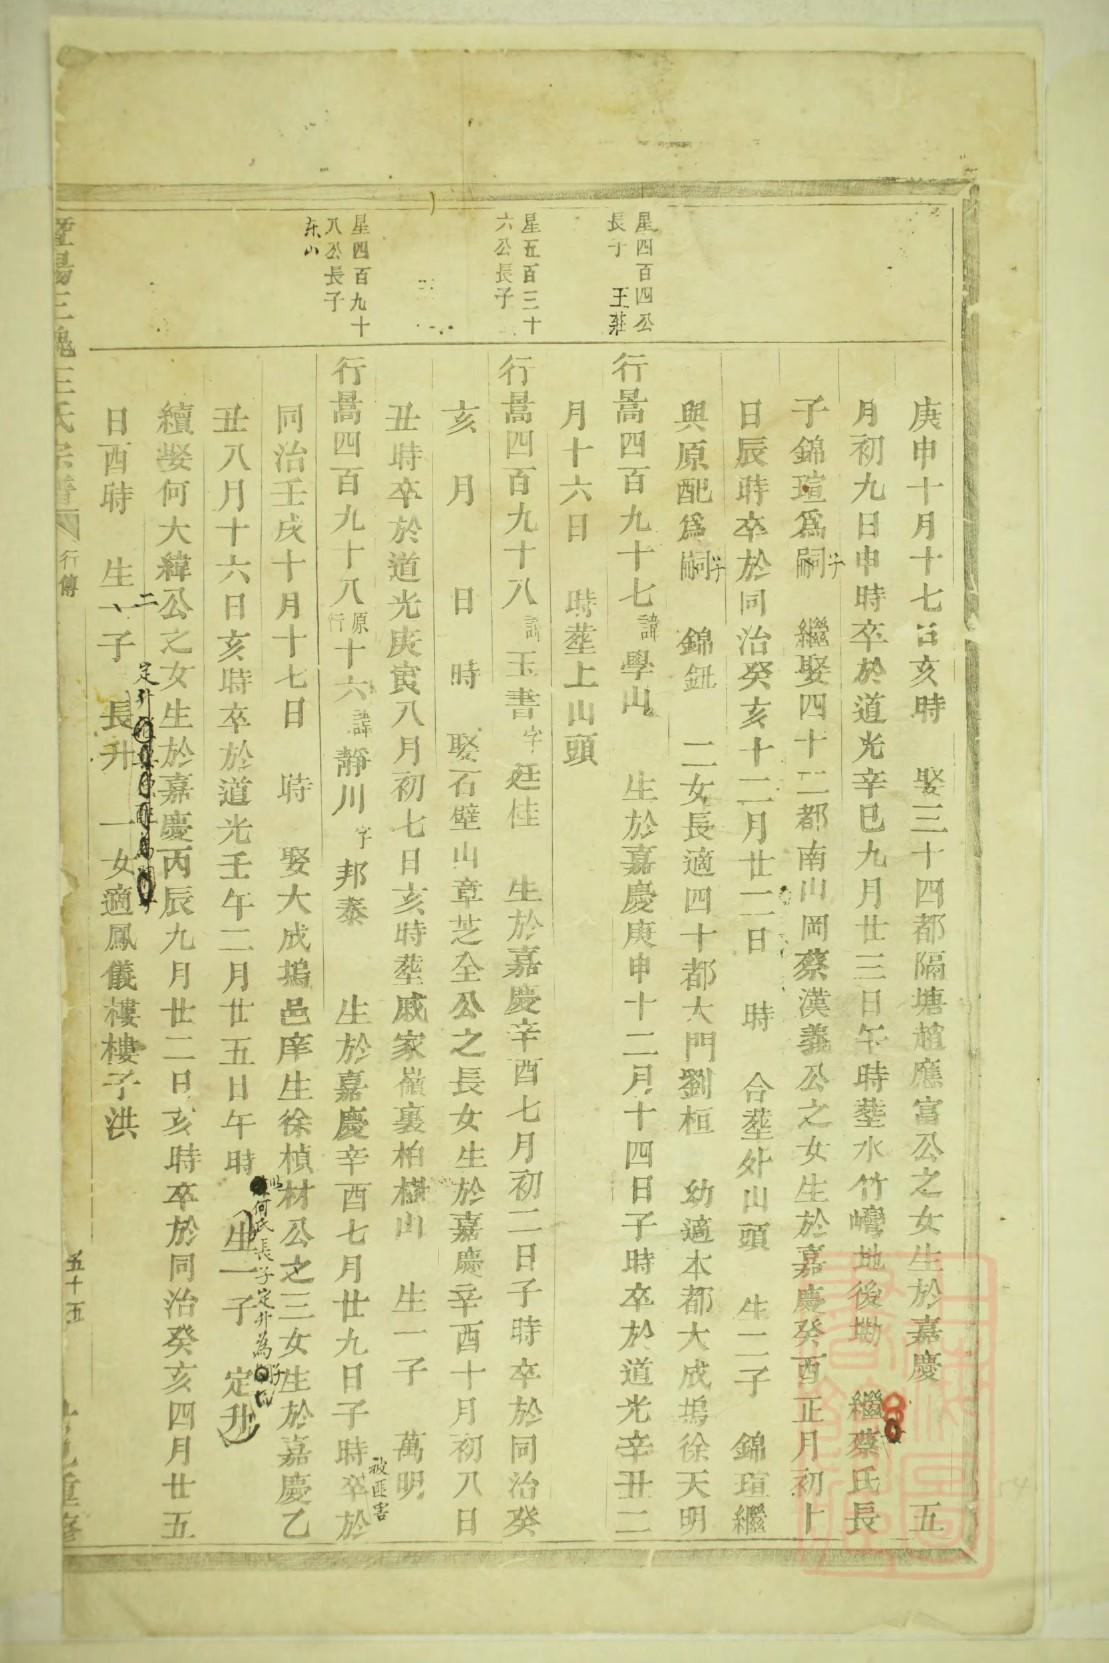 庚申十月十七日亥時　娶三十四都隔塘趙應富公之女生於嘉慶　五
月初九日申時卒於道光辛巳九月廿三日午時塟水竹灣地後塝　繼蔡氏長
子錦瑄爲嗣子　繼娶四十二都南山岡蔡漢義公之女生於嘉慶癸酉正月初十
日辰時卒於同治癸亥十二月廿二日　時　合塟外山頭　生二子　錦瑄繼
與原配爲嗣子　錦鈕　二女長適四十都大門劉桓　幼適本都大成塢徐天明
星四百四公
長子　王莊
行暠四百九十七諱學山　生於嘉慶庚申十二月十四日子時卒於道光辛丑二
月十六日　時塟上山頭
星五百三十
六公長子
行暠四百九十八諱玉書字廷桂　生於嘉慶辛酉七月初二日子時卒於同治癸
亥　月　日　時　娶石壁山章芝全公之長女生於嘉慶辛酉十月初八日
丑時卒於道光庚寅八月初七日亥時塟戚家嶺裏柏樹山　生一子　萬明
被匪害
星四百九十
八公長子
东山
行暠四百九十八原行十六諱靜川字邦泰　生於嘉慶辛酉七月廿九日子時卒於
同治壬戌十月十七日　時　娶大成塢邑庠生徐楨材公之三女生於嘉慶乙
丑八月十六日亥時卒於道光壬午二月廿五日午時　生一子　定升
何氏長子定升為
續娶何大緯公之女生於嘉慶丙辰九月廿二日亥時卒於同治癸亥四月廿五
日酉時　生二子　定升　長升　一女適鳳儀樓樓子洪
暨陽三槐王氏宗譜
行傳
五十五
重修